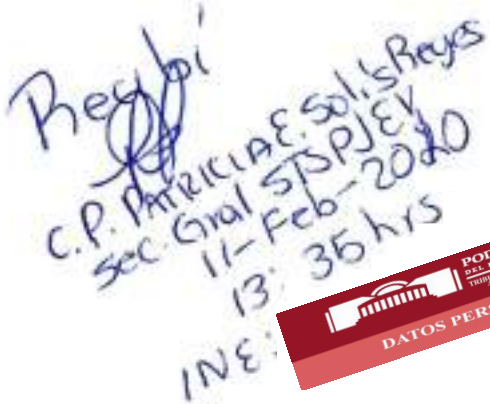 Recibí
C.P. PATRICIA E. Solís Reyes
Sec. Gral STSPJEV
11-Feb-2020
13:35 hrs
INE:
POD
DEL
TRIBU
DATOS PERS